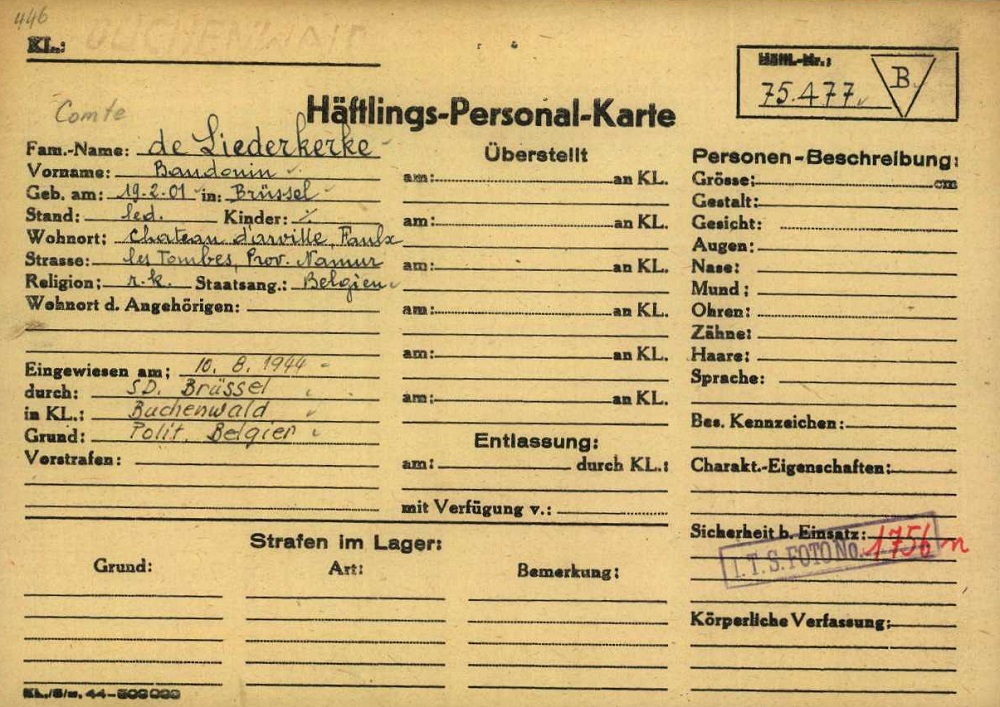 446
KL.: BUCHENWALD
Häftl.-Nr.:
75.477 B.
Comte
Häftlings-Personal-Karte
Fam.-Name: de Liederkerke
Vorname: Baudouin
Geb. am: 19.2.01 in: Brüssel
Stand: led. Kinder: %
Wohnort: Chateau d'arville, Faulx
Strasse: les Tombes, Prov. Namur
Religion: r.k. Staatsang.: Belgien
Wohnort d. Angehörigen:
Eingewiesen am: 10. 8. 1944
durch: SD. Brüssel
in KL.: Buchenwald
Grund: Polit. Belgier
Vorstrafen:
Überstellt
am: an KL.
am: an KL.
am: an KL.
am: an KL.
am: an KL.
am: an KL.
Entlassung:
am: durch KL.:
mit Verfügung v.:
Personen-Beschreibung:
Grösse: cm
Gestalt:
Gesicht:
Augen:
Nase:
Mund:
Ohren:
Zähne:
Haare:
Sprache:
Bes. Kennzeichen:
Charakt.-Eigenschaften:
Sicherheit b. Einsatz:
I.T.S. FOTO No. 1756 n
Körperliche Verfassung:
Strafen im Lager:
Grund: Art: Bemerkung: